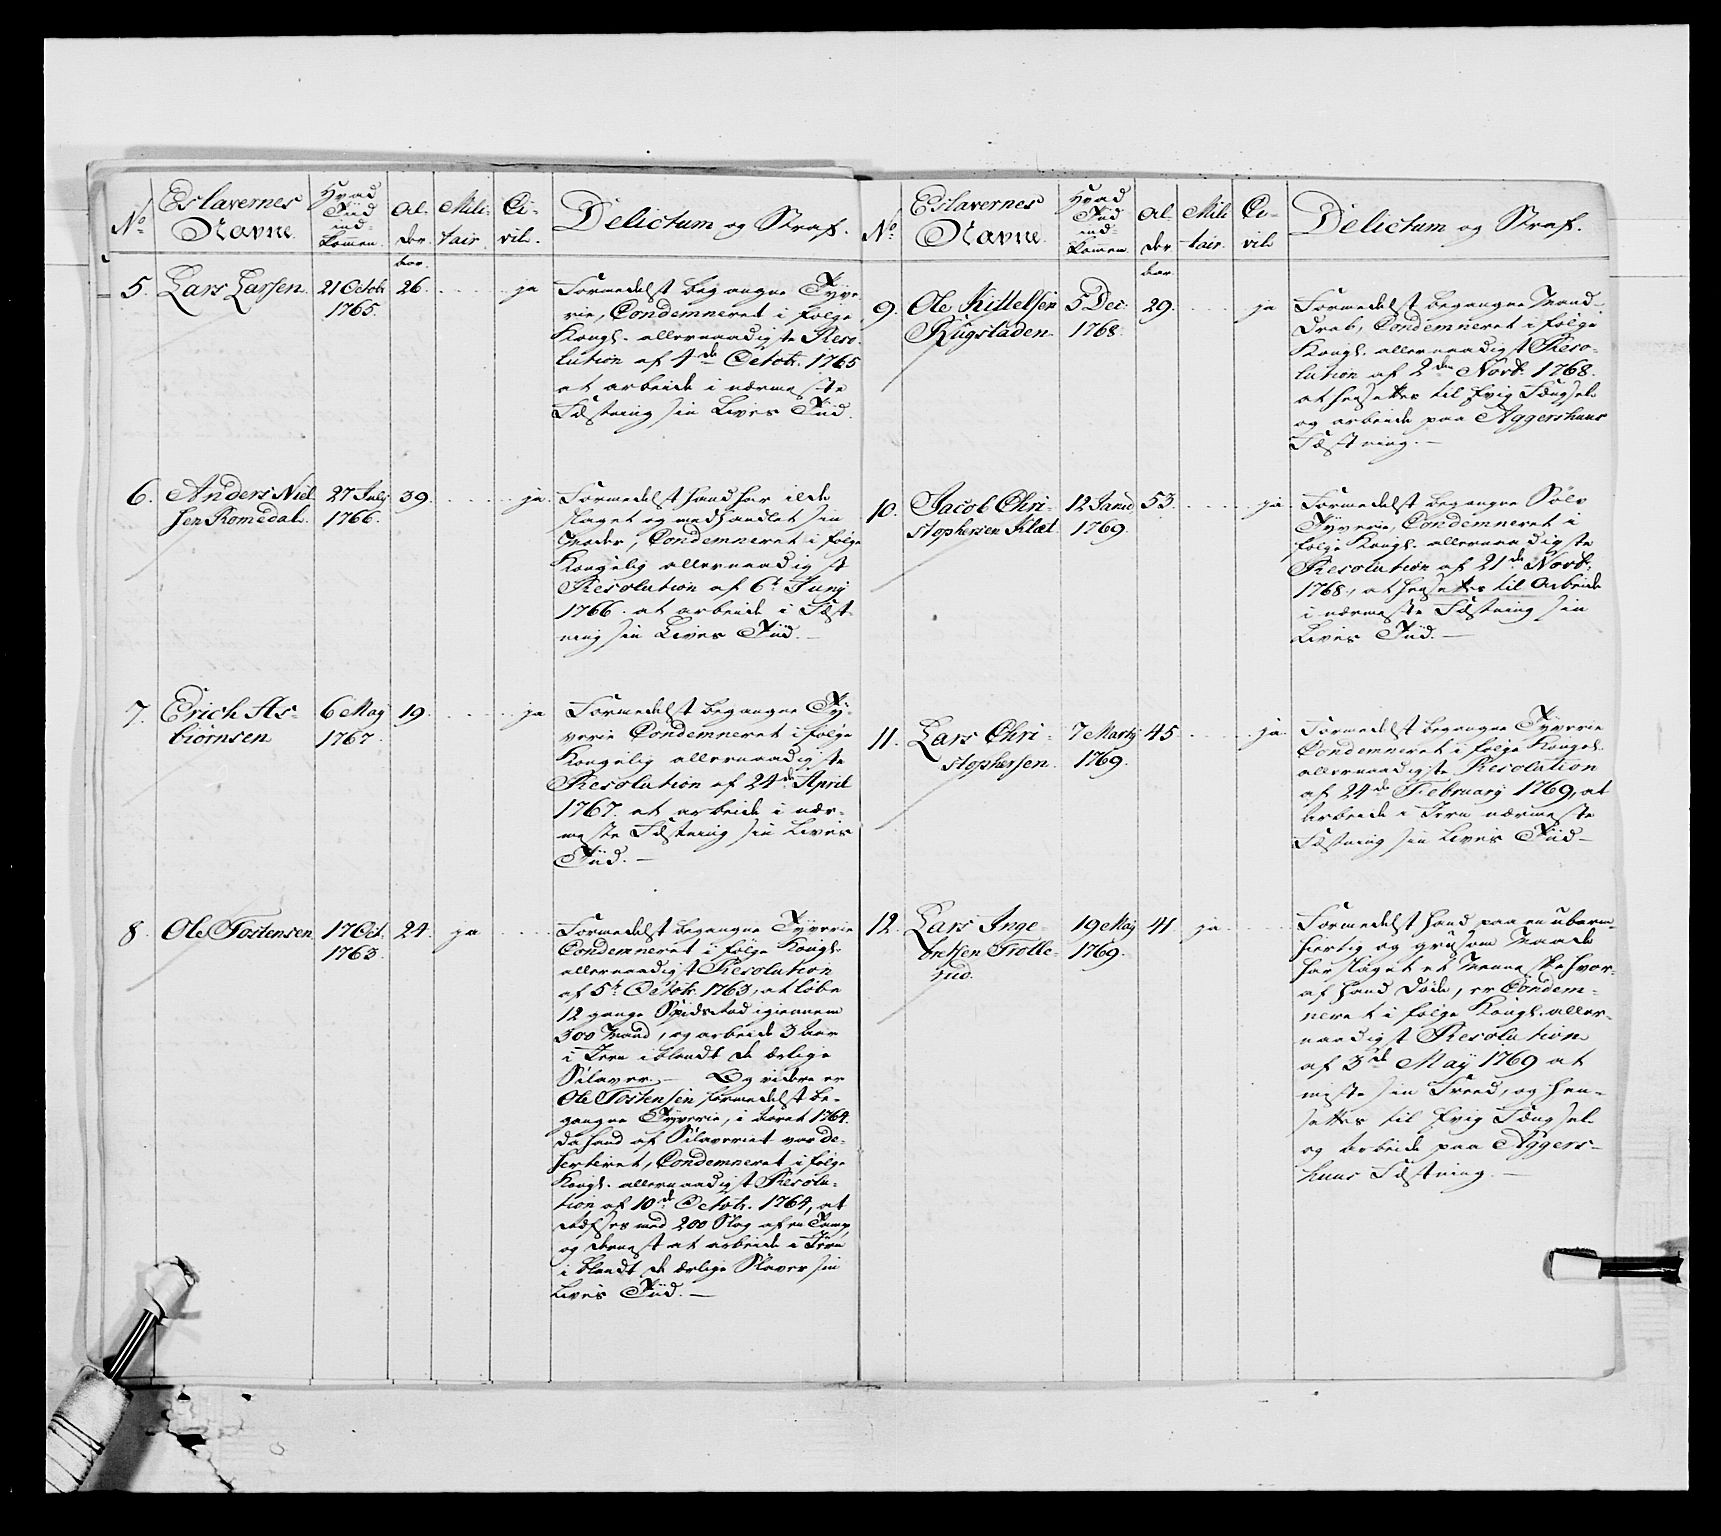 No. Eslavernes Navne. Hvad Tiid ind-kommen. Al-der. Mili-tair. Ci-vile. Delictum og Straf.
Aar.
5. Lars Larsen. 21 Octob: 1765. 26. ja Formedelst begangne Tyve-
rie, Condemneret i følge
Kongl. allernaadigste Reso-
lution af 4de Octob: 1765
at arbeide i nærmeste
Fæstning sin Lives Tiid.
6. Anders Niel-
sen Romedal. 27 July 1766. 39. ja. Formedelst hand har ilde
slaget og medhandlet sin
Moder, Condemneret i følge
Kongelig allernaadigst
Resolution af 6t Juny
1766. at arbeide i Fæst-
ning sin Lives Tiid.
7. Erich As-
biørnsen 6 May 1767. 19. ja Formedelst begangne Ty-
verie Condemneret i følge
Kongelig allernaadigste
Resolution af 24de April
1767. at arbeide i nær-
meste Fæstning sin Lives
Tiid.
8. Ole Tostensen 17 Oct. 1763. 24. ja Formedelst begangne Tyverie
Condemneret i følge Kongl.
allernaadigst Resolution
af 5t Octob: 1763, at løbe
12 gange Spidsrod igiennem
300 Mand, og arbeide 3 Aar
i Jern iblandt de ærlige
Slaver. Og videre er
Ole Tostensen formedelst be-
gangne Tyverie, i Aaret 1764.
da hand af Slaveriet var de-
serteret, Condemneret i følge
Kongl. allernaadigst Resolu-
tion af 10de Octob: 1764, at
med 200 Slag af en Tamp
og dernest at arbeide i Jern
iblandt de ærlige Slaver sin
Lives Tiid.
No. Eslavernes Navne. Hvad Tiid ind-kommen. Al-der Mili-tair. Ci-vile Delictum og Straf.
Aar.
9. Ole Kittelsen
Rugstaden. 5 Dec: 1768. 29. ja Formedelst begangne Mand-
Drab, Condemneret i følge
Kongl. allernaadigst Reso-
lution af 2den Novb: 1768.
at hensettes til Evig Fængsel
og arbeide paa Aggershuus
Fæstning.
10. Jacob Chri-
stophersen Klæt. 12 Janu 1769. 53. ja Formedelst begangne Sølv
Tyverie, Condemneret i
følge Kongl. allernaadigste
Resolution af 21de Novb:
1768, at hensettes til Arbeide
i nærmeste Fæstning sin
Lives Tiid.
11. Lars Chri-
stophersen. 7 Marty 1769. 45. ja Formedelst begangne Tyverie
Condemneret i følge Kongel.
allernaadigste Resolution
af 24de February 1769, at
arbeide i Jern nærmeste
Fæstning sin Lives Tiid
12. Lars Inge-
bretsen Trolle-
rud. 19 May 1769. 41. ja Formedelst hand paa en ubarm-
hiertig og grusom Maade
har slaget et Menneske hvor-
af hand Døde, er Condem-
neret i følge Kongl. aller-
naadigst Resolution
af 3de May 1769 at
miste sin Freed, og hen-
settes til Evig Fængsel
og Arbeide paa Aggers-
huus Fæstning.